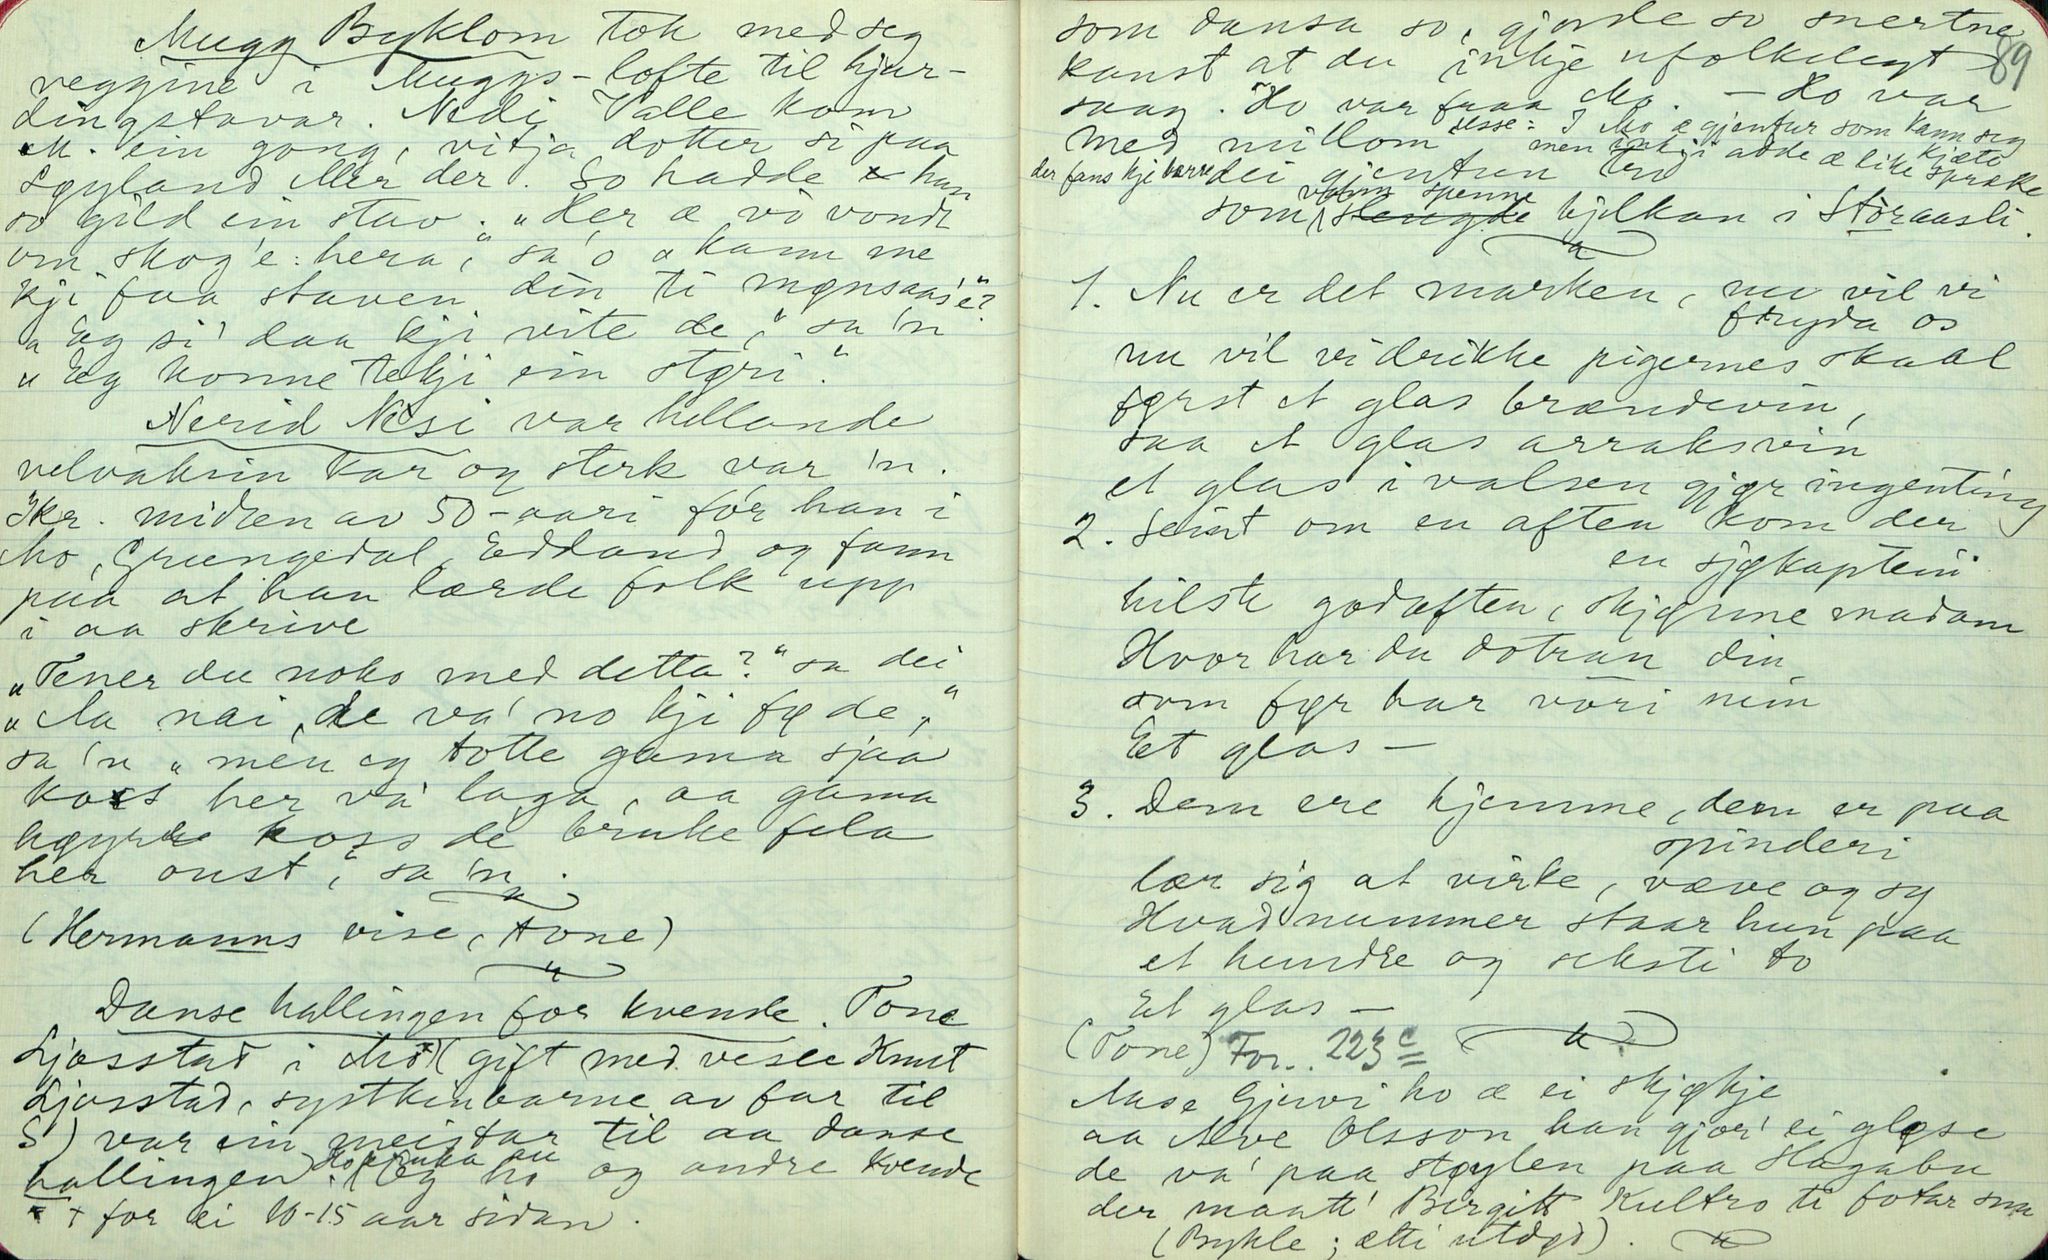 Mugg Byklom tok med seg
veggine i Muggs-lofte til hjur-
dingstavar. Nedi Valle kom
M. ein gong, vitja dotter si paa
Løyland eller der. So hadde han
so gild ein stav. "Her æ vò vondt
um skog'e hera," sa'o "kann me
kji faa staven din ti mønsaas'e"?
"Eg si' daa kji vite de," sa'n
"Eg konne tekji ein støri".
Nerid Nesi var hellande
velvaksin kar og sterk var'n.
Ikr. midten av 50-aari fór han i
Mo, Grungedal, Edland og fann
paa at han lærde folk upp
i aa skrive
"Tener du noko med detta?" sa dei
"Aa nai, de va' no kji fø de,"
sa'n "men eg totte gama sjaa
koss her va' laga, aa gama
høyre koss de bruke fela
her aust," sa'n.
(Hermanns vise, Tone)
Danse hallingen for kvende. Tone
Ljosstad i Mo + (gift med vesle Knut
Ljosstad, systkinbarne av far til
S) var ein meistar til aa danse
hallingen. Og ho og andre kvende
+ for ei 10-15 aar sidan.
89
som dansa so, gjorde so snertne
kunst at du inkje ufolkelegt
saag. Ho var fraa Mo. – Ho var
med millom disse: I Mo æ gjentur som kann seg kjæte
men inkji adde æ like spræke
der fans kji barre dei gjentun tri
som slengde spenne hjelkan i Støraasli.
1. Nu er det marken, nu vil vi
fryda os
nu vil vi drikke pigernes skaal
først et glas brændevin,
saa et glas arraksvin
et glas i valsen gjør ingenting
2. Seint om en aften kom der
en sjøkaptein
hilste godaften, skjønne madam
Hvor har du dotran din
som før har vori min
Et glas –
3. Dem ere hjemme, dem er paa
spinderi
lær sig at virke, væve og sy
Hvad nummer staar hun paa
et hundre og seksti to
Et glas –
(Tone) For. 223 c
Aase Gjervi ho æ ei skjøkje
aa Alve Olsson han gjor' ei gløse
de va' paa støylen paa Hagabu
der maatt' Birgitt Kultro ti fotar snu
(Bykle; ætti utdøyd).